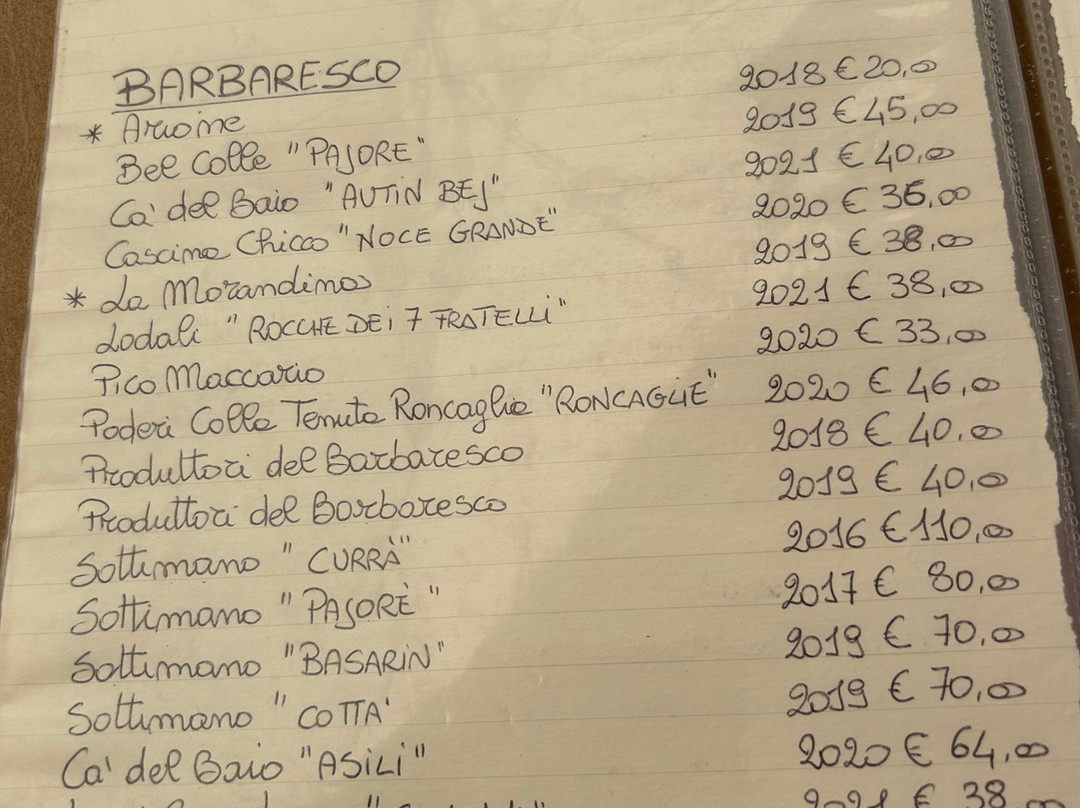 BARBARESCO
* Arione 2018 € 20,00
Bel Colle "PAJORE" 2019 € 45,00
Ca' del Baio "AUTIN BEJ" 2021 € 40,00
Cascina Chicco "NOCE GRANDE" 2020 € 36,00
* La Morandina 2019 € 38,00
Lodali "ROCCHE DEI 7 FRATELLI" 2021 € 38,00
Pico Maccario 2020 € 33,00
Poderi Colla Tenuta Roncaglia "RONCAGLIE" 2020 € 46,00
Produttori del Barbaresco 2018 € 40,00
Produttori del Barbaresco 2019 € 40,00
Sottimano "CURRÀ" 2016 € 110,00
Sottimano "PAJORÈ" 2017 € 80,00
Sottimano "BASARIN" 2019 € 70,00
Sottimano "COTTA' 2019 € 70,00
Ca' del Baio "ASILI" 2020 € 64,00
2021 € 38